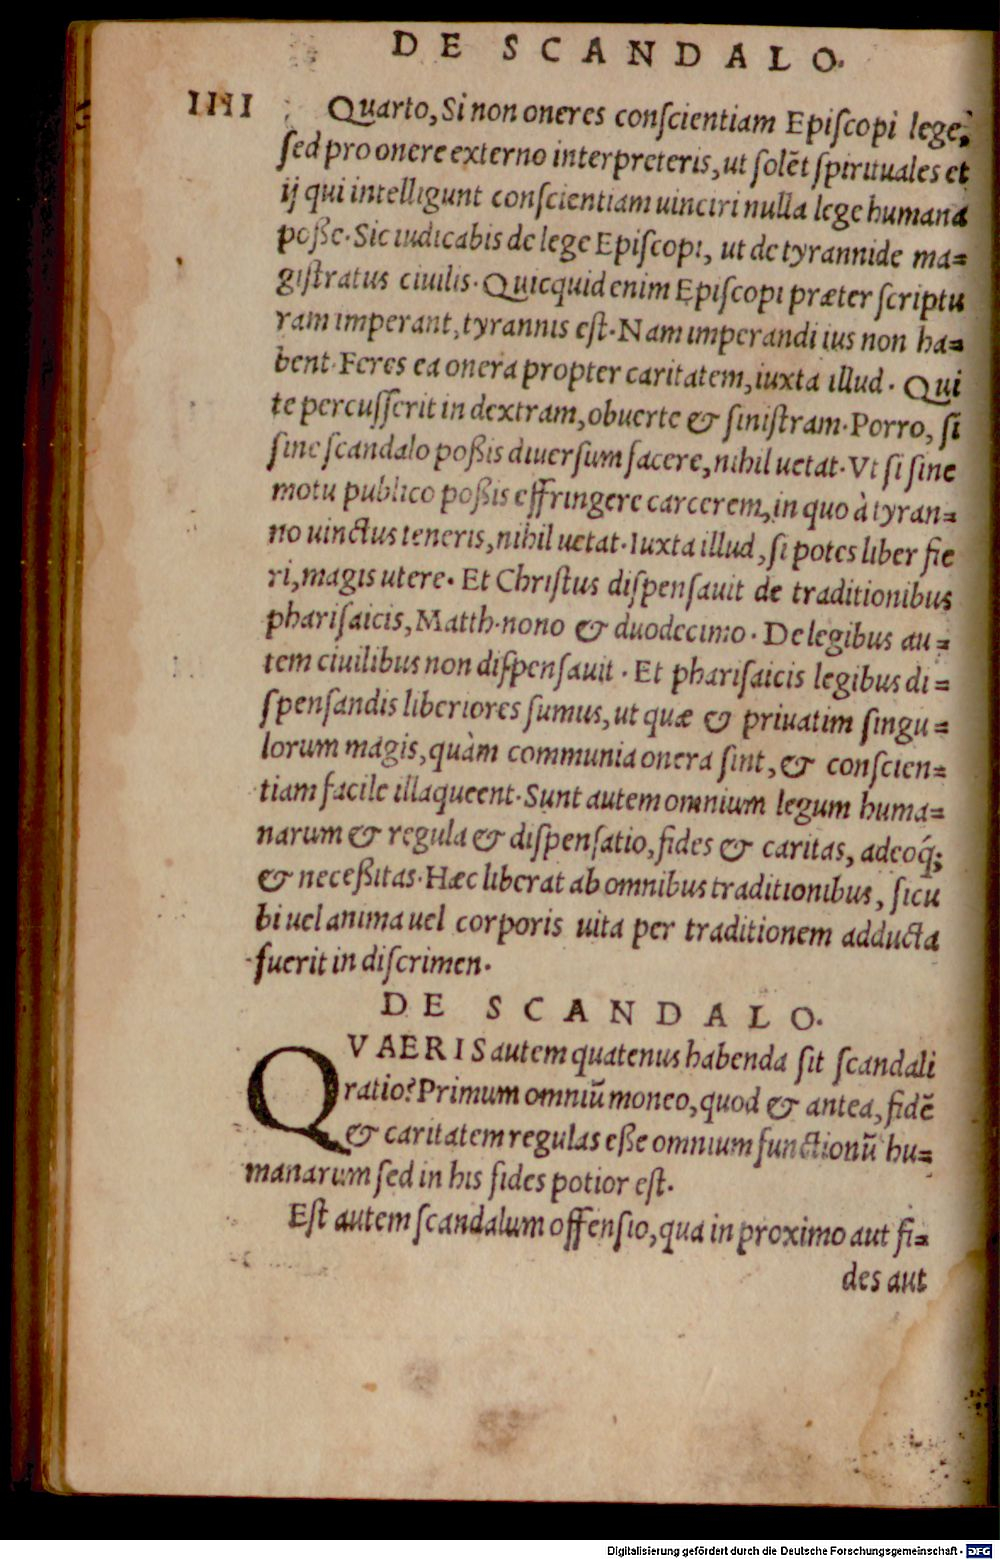 DE SCANDALO.
IIII Quarto, Si non oneres conſcientiam Epiſcopi lege,
ſed pro onere externo interpreteris, ut ſolēt ſpirituales et
ij qui intelligunt conſcientiam uinciri nulla lege humana
poße. Sic iudicabis de lege Epiſcopi, ut de tyrannide ma=
giſtratus ciuilis. Quicquid enim Epiſcopi præter ſcriptu
ram imperant, tyrannis eſt. Nam imperandi ius non ha=
bent. Feres ea onera propter caritatem, iuxta illud. Qui
te percuſſerit in dextram, obuerte & ſiniſtram. Porro, ſi
ſine ſcandalo poßis diuerſum facere, nihil uetat. Vt ſi ſine
motu publico poßis effringere carcerem, in quo à tyran=
no uinctus teneris, nihil uetat. Iuxta illud, ſi potes liber fie
ri, magis utere. Et Chriſtus diſpenſauit de traditionibus
phariſaicis, Matth. nono & duodecimo. De legibus au=
tem ciuilibus non diſpenſauit. Et phariſaicis legibus di=
ſpenſandis liberiores ſumus, ut quæ & priuatim ſingu=
lorum magis, quàm communia onera ſint, & conſcien=
tiam facile illaqueent. Sunt autem omnium legum huma=
narum & regula & diſpenſatio, fides & caritas, adeoq́;
& neceßitas. Hæc liberat ab omnibus traditionibus, ſicu
bi uel anima uel corporis uita per traditionem adducta
fuerit in diſcrimen.
DE SCANDALO.
QVAERIS autem quatenus habenda ſit ſcandali
ratio? Primum omniū moneo, quod & antea, fidē
& caritatem regulas eße omnium functionū hu=
manarum ſed in his fides potior eſt.
Eſt autem ſcandalum offenſio, qua in proximo aut fi=
des aut
Digitalisierung gefördert durch die Deutsche Forschungsgemeinschaft - DFG